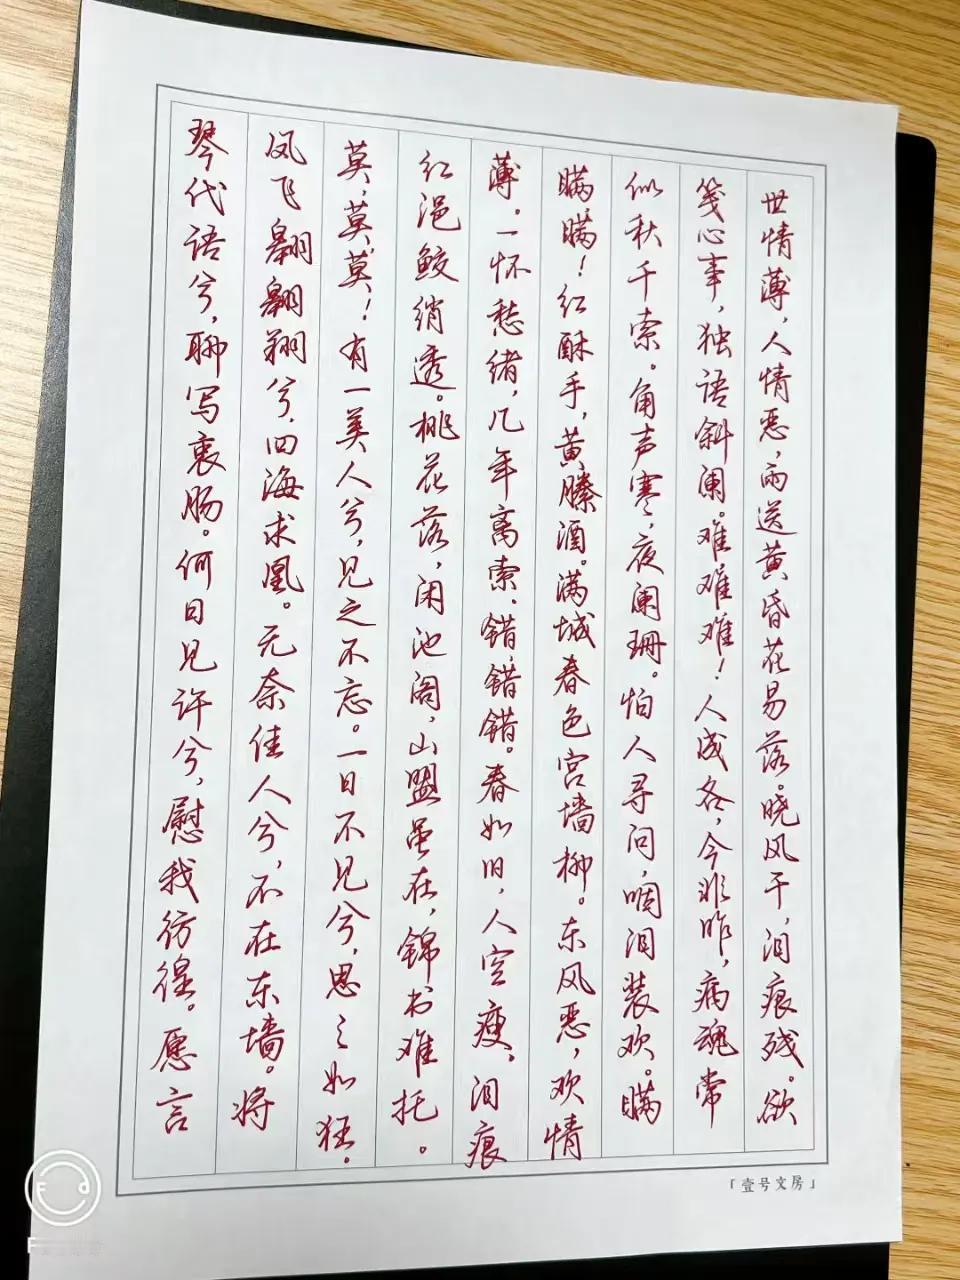 世情薄，人情恶，雨送黄昏花易落。晓风干，泪痕残。欲
笺心事，独语斜阑。难难难！人成各，今非昨，病魂常
似秋千索。角声寒，夜阑珊。怕人寻问，咽泪装欢。瞒
瞒瞒！红酥手，黄縢酒。满城春色宫墙柳。东风恶，欢情
薄。一怀愁绪，几年离索。错，错，错。春如旧，人空瘦，泪痕
红浥鲛绡透。桃花落，闲池阁，山盟虽在，锦书难托。
莫，莫，莫！有一美人兮，见之不忘。一日不见兮，思之如狂。
凤飞翱翔兮，四海求凰。无奈佳人兮，不在东墙。将
琴代语兮，聊写衷肠。何日见许兮，慰我彷徨。愿言
「壹号文房」